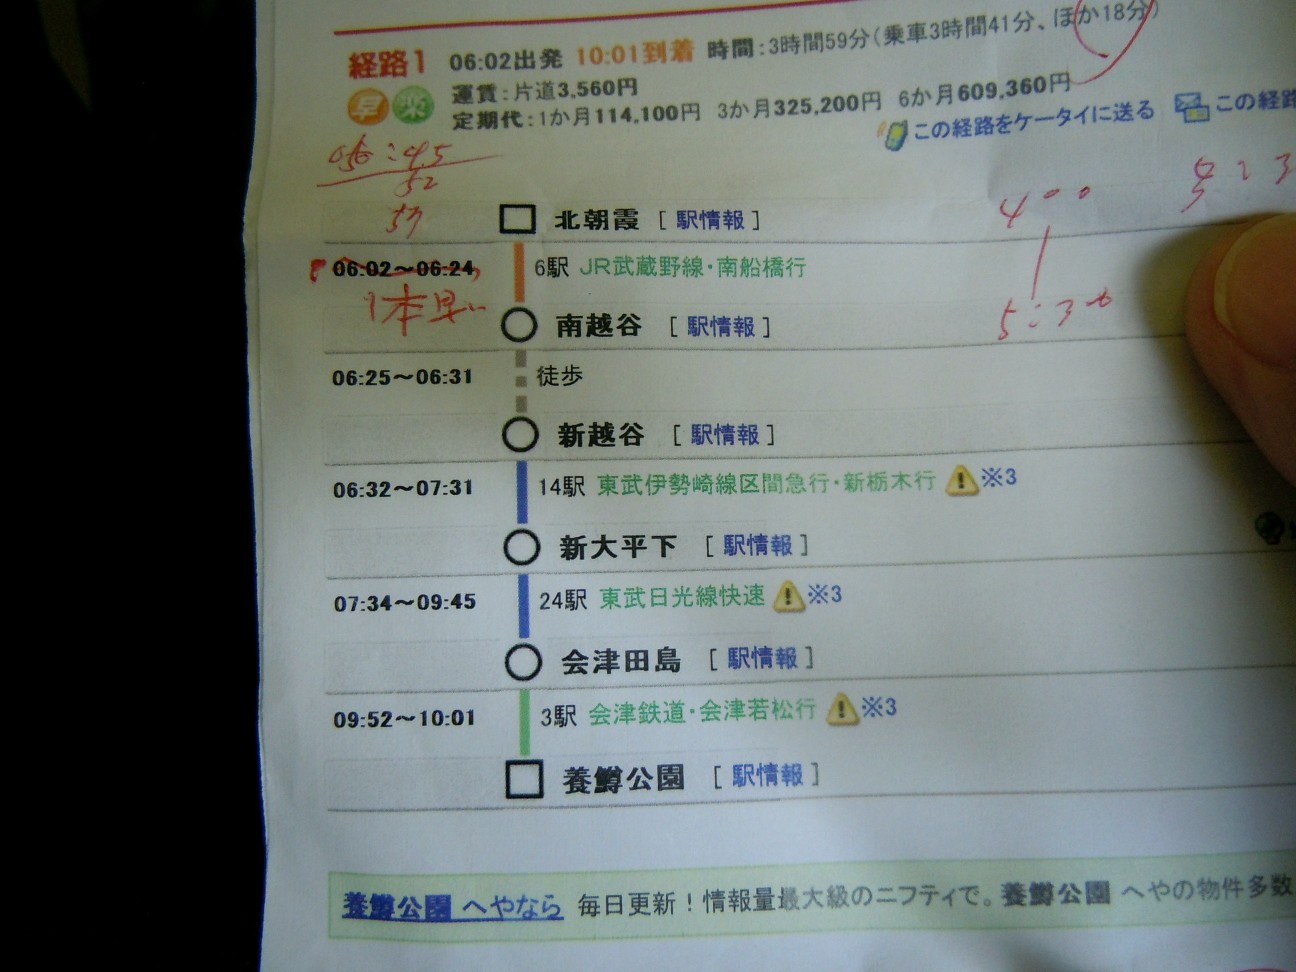 経路1 06:02出発 10:01到着 時間:3時間59分(乗車3時間41分、ほか18分)
早 楽 運賃:片道3,560円
定期代:1か月114,100円 3か月325,200円 6か月609,360円
この経路をケータイに送る この経路
:45
52
57
400
5:3
北朝霞 [駅情報]
06:02～06:24 6駅 JR武蔵野線・南船橋行
1本早い
南越谷 [駅情報]
06:25～06:31 徒歩
新越谷 [駅情報]
06:32～07:31 14駅 東武伊勢崎線区間急行・新栃木行 ※3
新大平下 [駅情報]
07:34～09:45 24駅 東武日光線快速 ※3
会津田島 [駅情報]
09:52～10:01 3駅 会津鉄道・会津若松行 ※3
養鱒公園 [駅情報]
養鱒公園 へやなら 毎日更新！情報量最大級のニフティで。養鱒公園 へやの物件多数